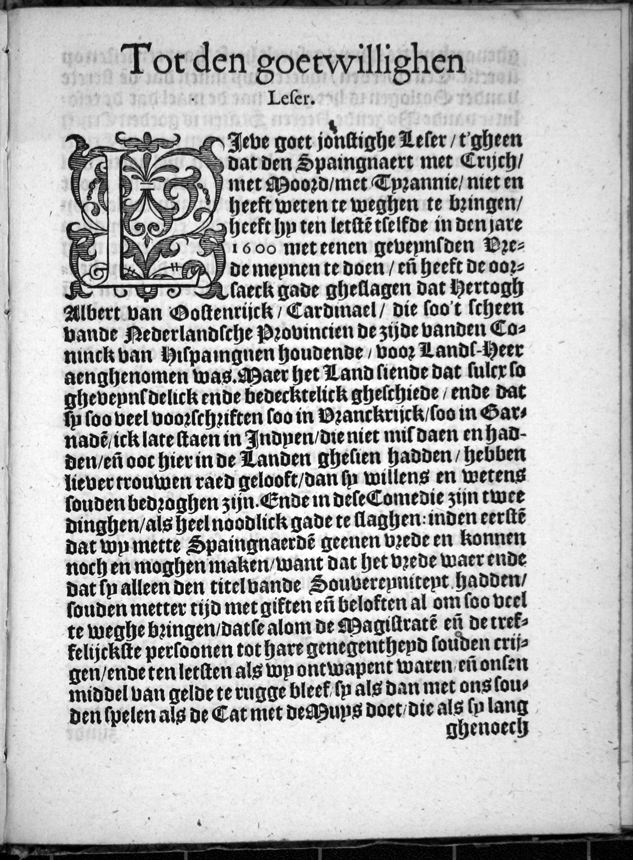 Tot den goetwillighen
Leser.
LIeve goet jonstighe Leser / t'gheen
dat den Spaingnaert met Crijch/
met Moord/met Tyrannie/ niet en
heeft weten te weghen te bringen/
heeft hy ten letstē tselfde in den jare
1600 met eenen geveynsden Vre-
de meynen te doen / eñ heeft de oor-
saeck gade gheslagen dat Hertogh
Albert van Oostenrijck / Cardinael / die soo't scheen
vande Nederlandsche Provincien de zijde vanden Co-
ninck van Hispaingnen houdende / voor Lands-Heer
aenghenomen was. Maer het Land siende dat sulcx so
gheveynsdelick ende bedecktelick gheschiede / ende dat
sy soo veel voorschriften soo in Vranckrijck/soo in Gar-
nadē/ick late staen in Indyen/die niet misdaen en had-
den/eñ ooc hier in de Landen ghesien hadden / hebben
liever trouwen raed gelooft/dan sy willens en wetens
souden bedroghen zijn. Ende in dese Comedie zijn twee
dinghen/als heel noodlick gade te slaghen: inden eerstē
dat wy mette Spaingnaerdē geenen vrede en konnen
noch en moghen maken/want dat het vrede waer ende
dat sy alleen den titel vande Souvereyniteyt hadden/
souden metter tijd met giften eñ beloften al om soo veel
te weghe bringen/datse alom de Magistratē eñ de tref-
felijckste persoonen tot hare genegentheyd souden crij-
gen/ende ten letsten als wy ontwapent waren eñ onsen
middel van gelde te rugge bleef/sy als dan met ons sou-
den spelen als de Cat met de Muys doet/die als sy lang
ghenoech